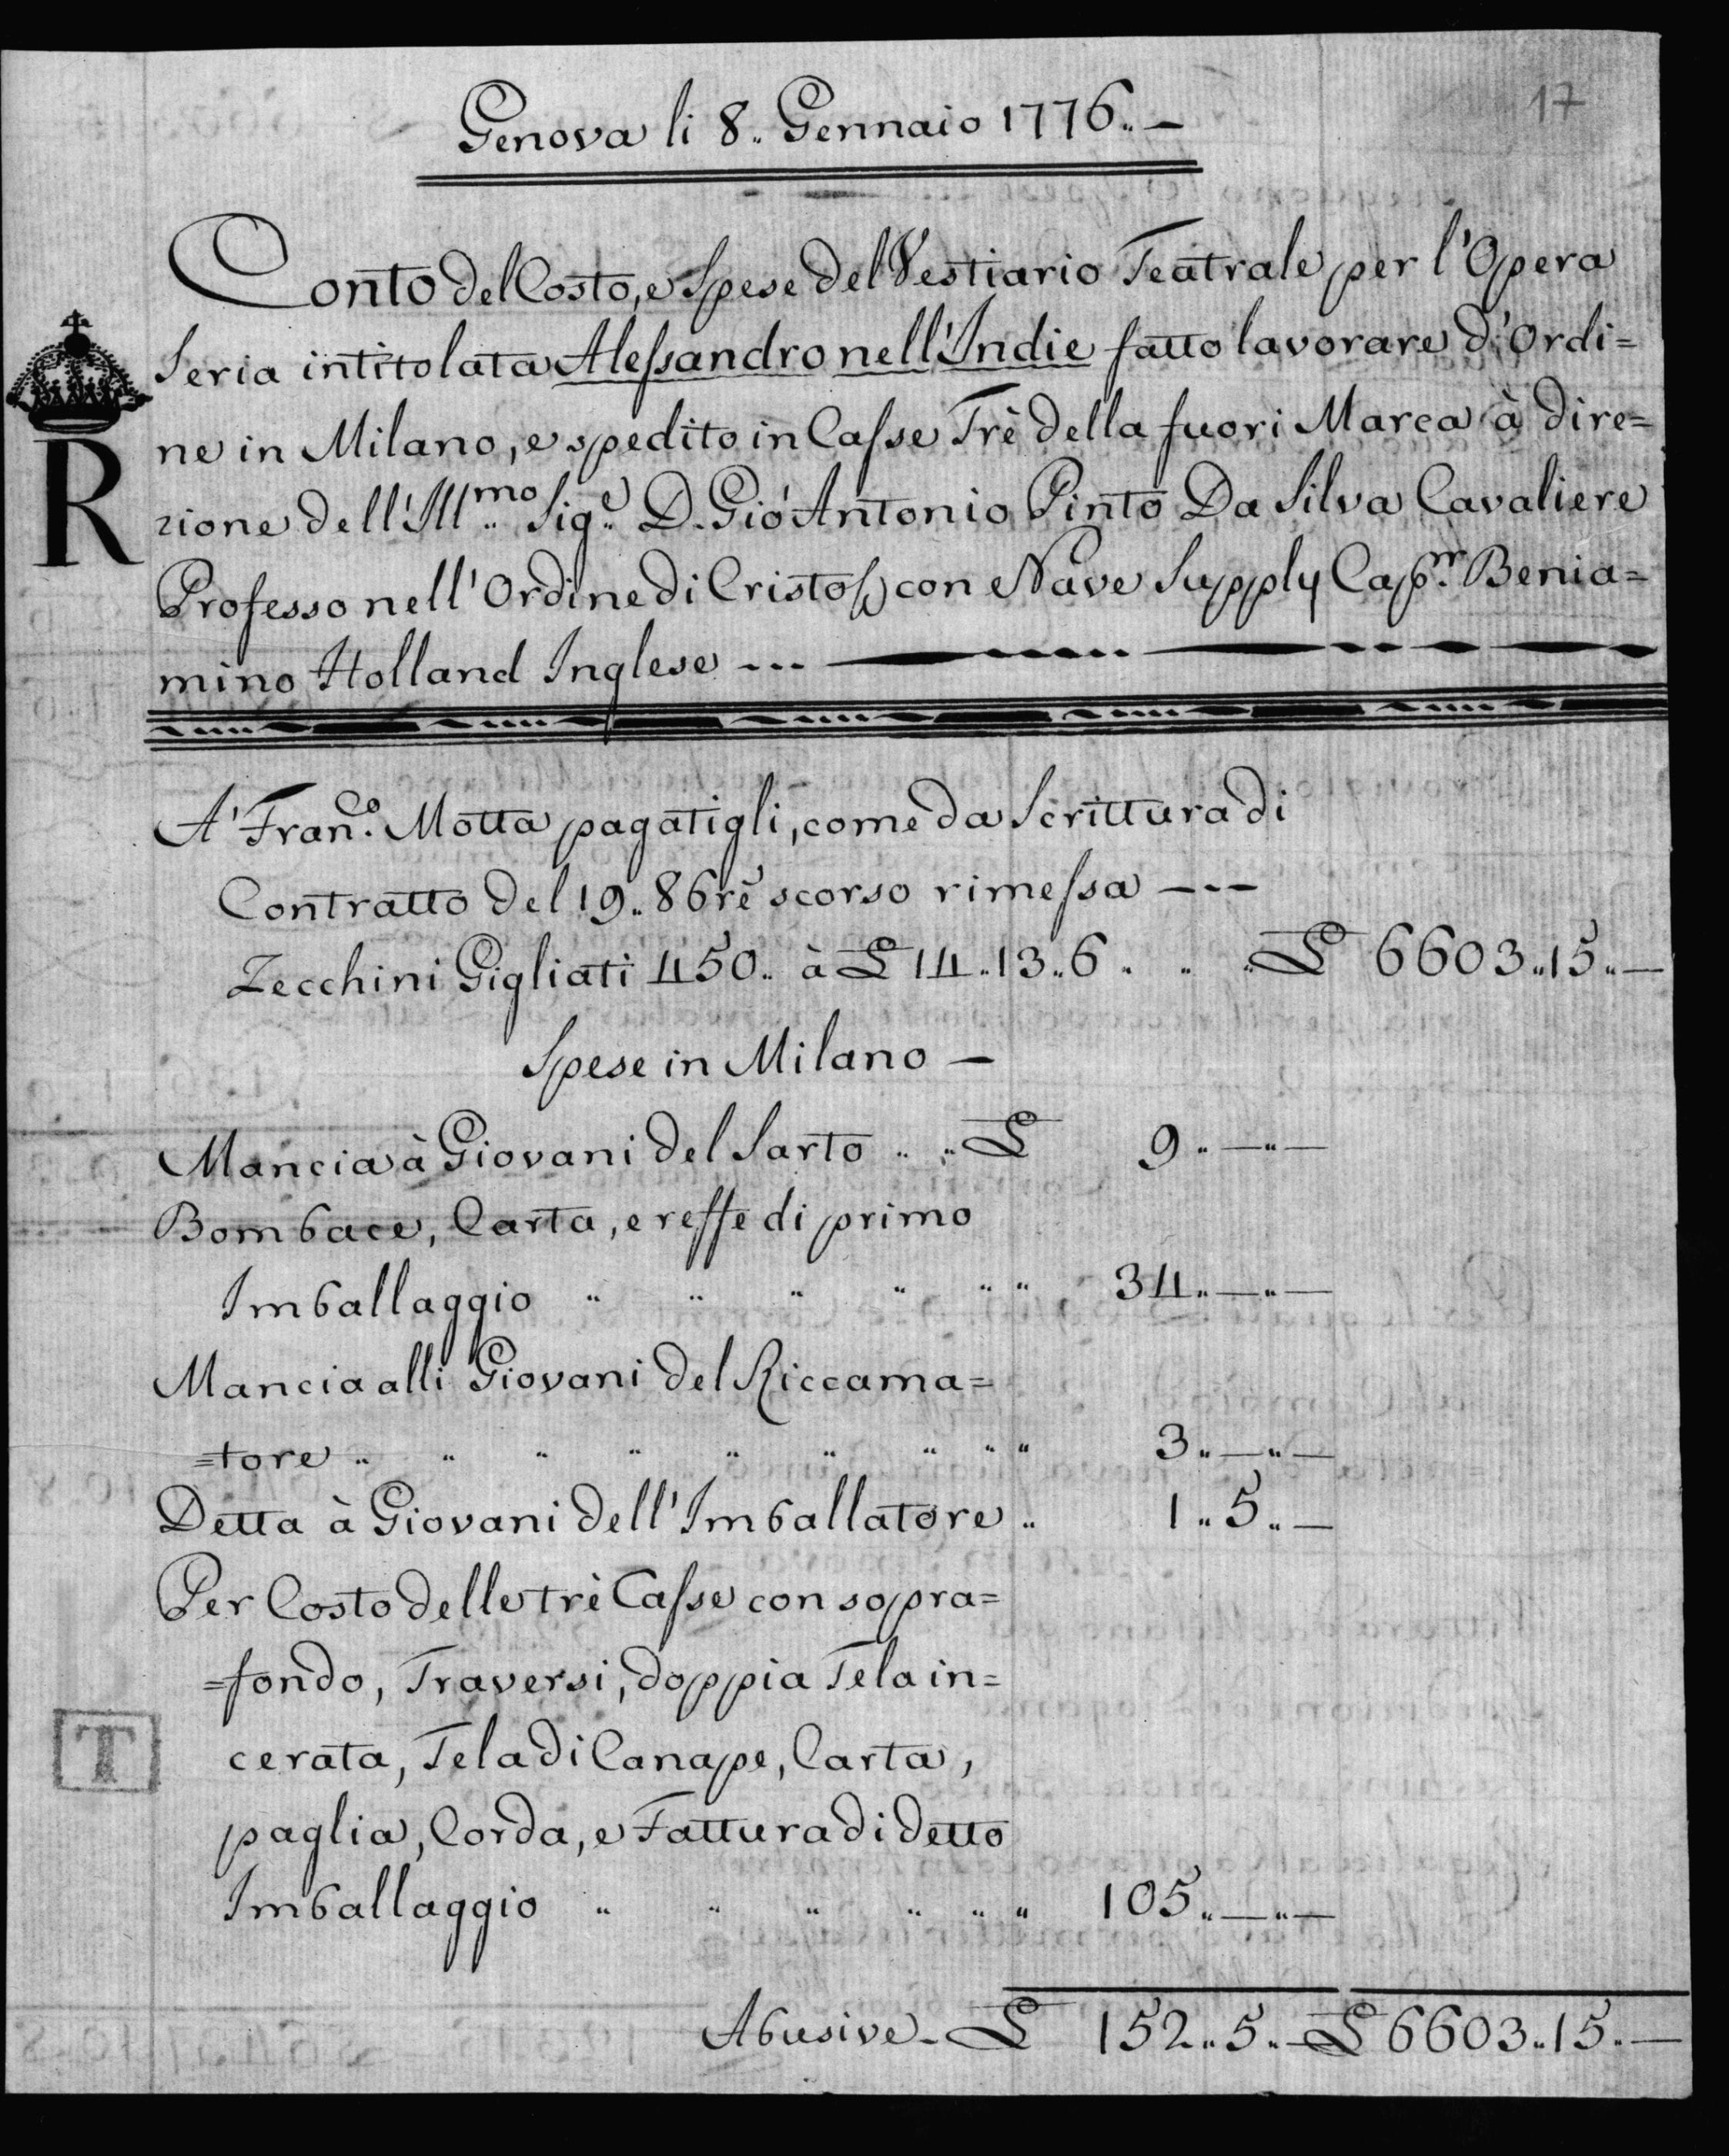 17
Genova li 8.. Gennaio 1776.. —
Conto del Costo, e Spese del Vestiario Teatrale per l'Opera
Seria intitolata Alessandro nell'Indie fatto lavorare d'Ordi=
ne in Milano, e spedito in Casse Trè della fuori Marca à dire=
zione dell'Ill.mo Sig.e D. Gio' Antonio Pinto Da Silva Cavaliere
R
Professo nell'Ordine di Cristo con Nave Supply Cap.n Benia=
mino Holland Inglese ---
A' Fran.co Motta pagatigli, come da Scrittura di
Contratto del 19.. 8bre scorso rimessa ---
Zecchini Gigliati 450.. à £ 14..13..6 .. .. £ 6603..15.. —
Spese in Milano —
Mancia à Giovani del Sarto .. .. £ 9.. — .. —
Bombace, Carta, e reffe di primo
Imballaggio .. .. .. .. .. .. 34.. — .. —
Mancia alli Giovani del Riccama=
=tore .. .. .. .. .. .. .. .. .. 3.. — .. —
Detta à Giovani dell'Imballatore .. 1..5.. —
Per Costo delle trè Casse con sopra=
=fondo, Traversi, doppia Tela in=
cerata, Tela di Canape, Carta,
T
paglia, Corda, e Fattura di detto
Imballaggio .. .. .. .. .. .. 105.. — .. —
Abusive - £ 152..5.. — £ 6603..15.. —